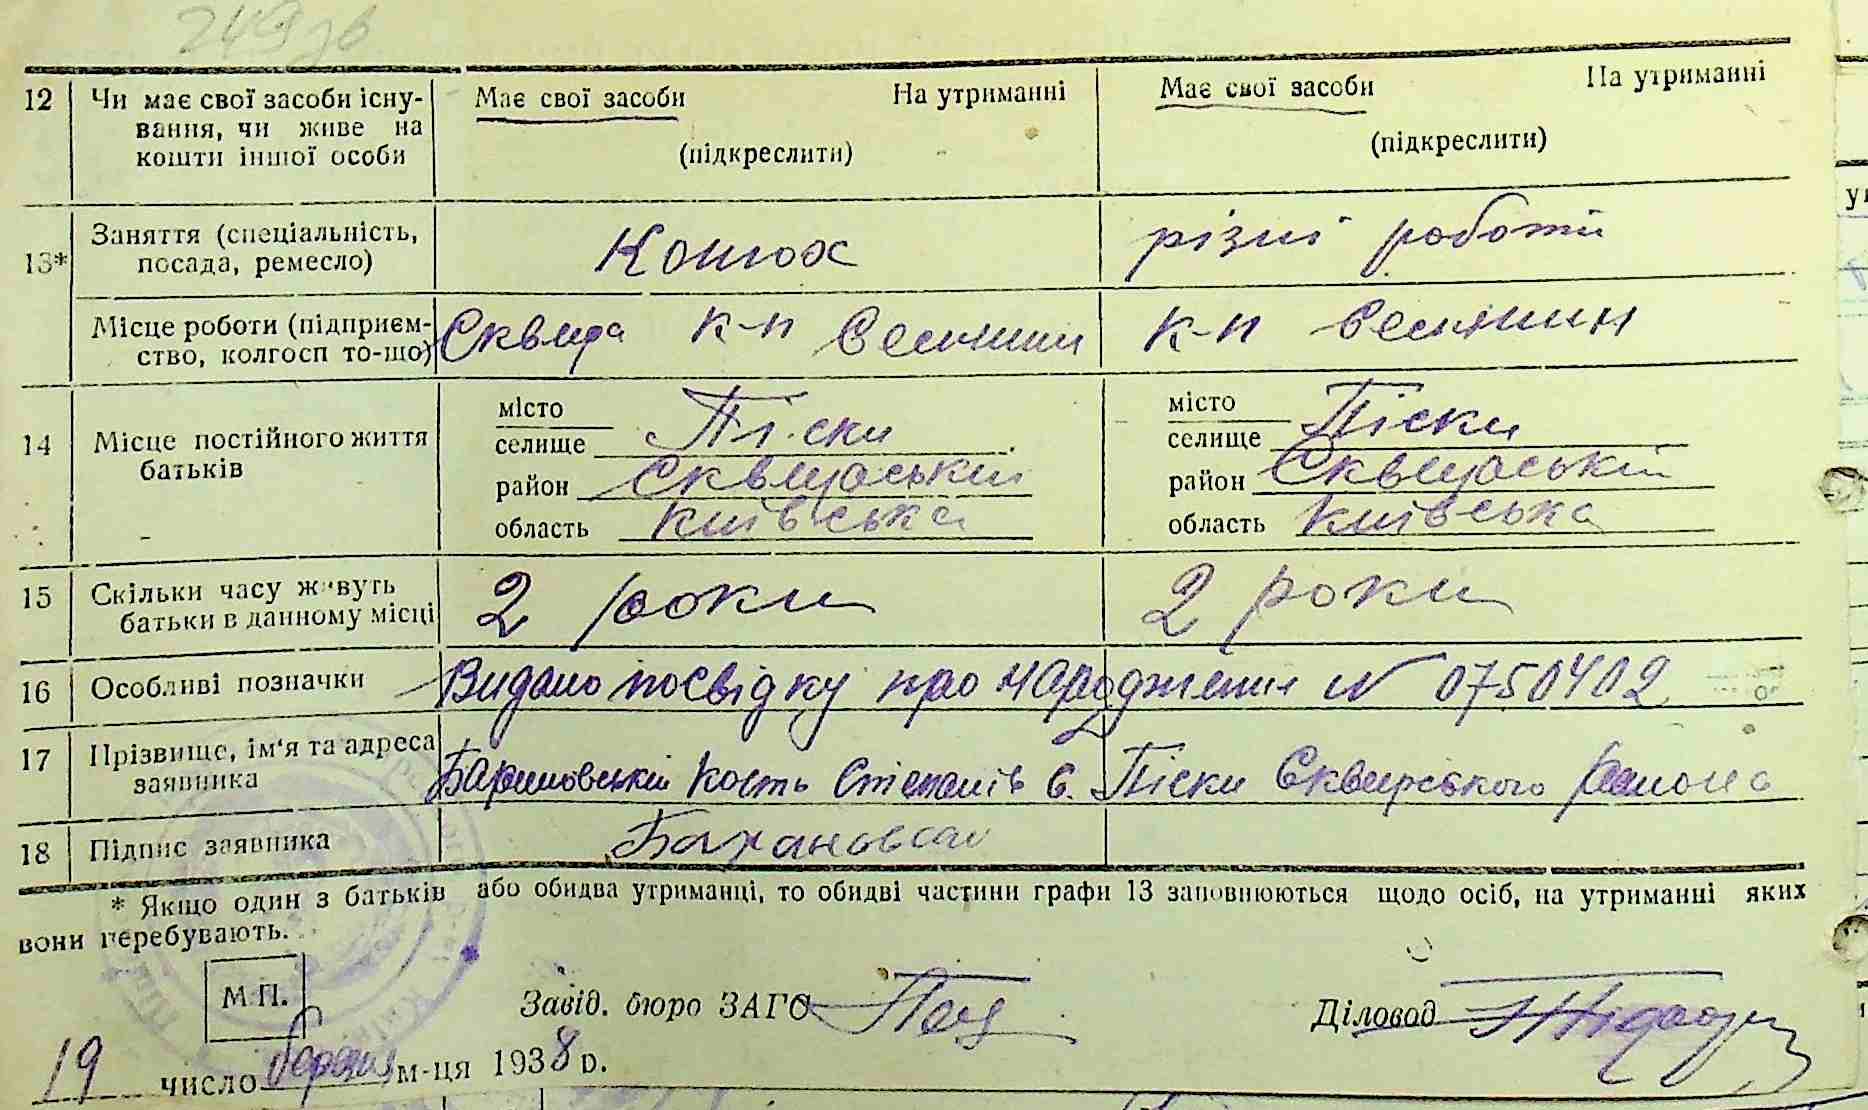 249 зв
12 Чи має свої засоби існу-вання, чи живе на кошти іншої особи Має свої засоби На утриманні (підкреслити) Має свої засоби На утриманні (підкреслити)
13* Заняття (спеціальність, посада, ремесло) Конюх різні роботи
Місце роботи (підприєм-ство, колгосп то-що) Сквира к-п к-п
14 Місце постійного життя батьків
місто
селище Піски
район Сквирський
область Київська
місто
селище Піски
район Сквирський
область Київська
15 Скільки часу живуть батьки в данному місці 2 роки 2 роки
16 Особливі позначки Видано посвідку про народження N 0750402
17 Прізвище, ім'я та адреса заявника Кость С. Піски Сквирського района
18 Підпис заявника
* Якщо один з батьків або обидва утриманці, то обидві частини графи 13 заповнюються щодо осіб, на утриманні яких
вони перебувають.
М.П. Завід. бюро ЗАГС Діловод
19 число березня м-ця 1938 р.